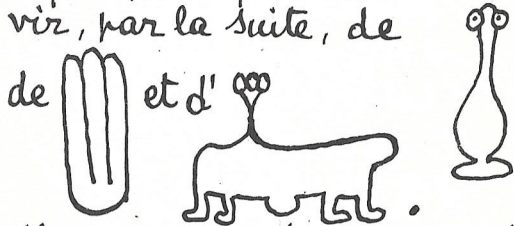 vir, par la suite, de
de et d' .